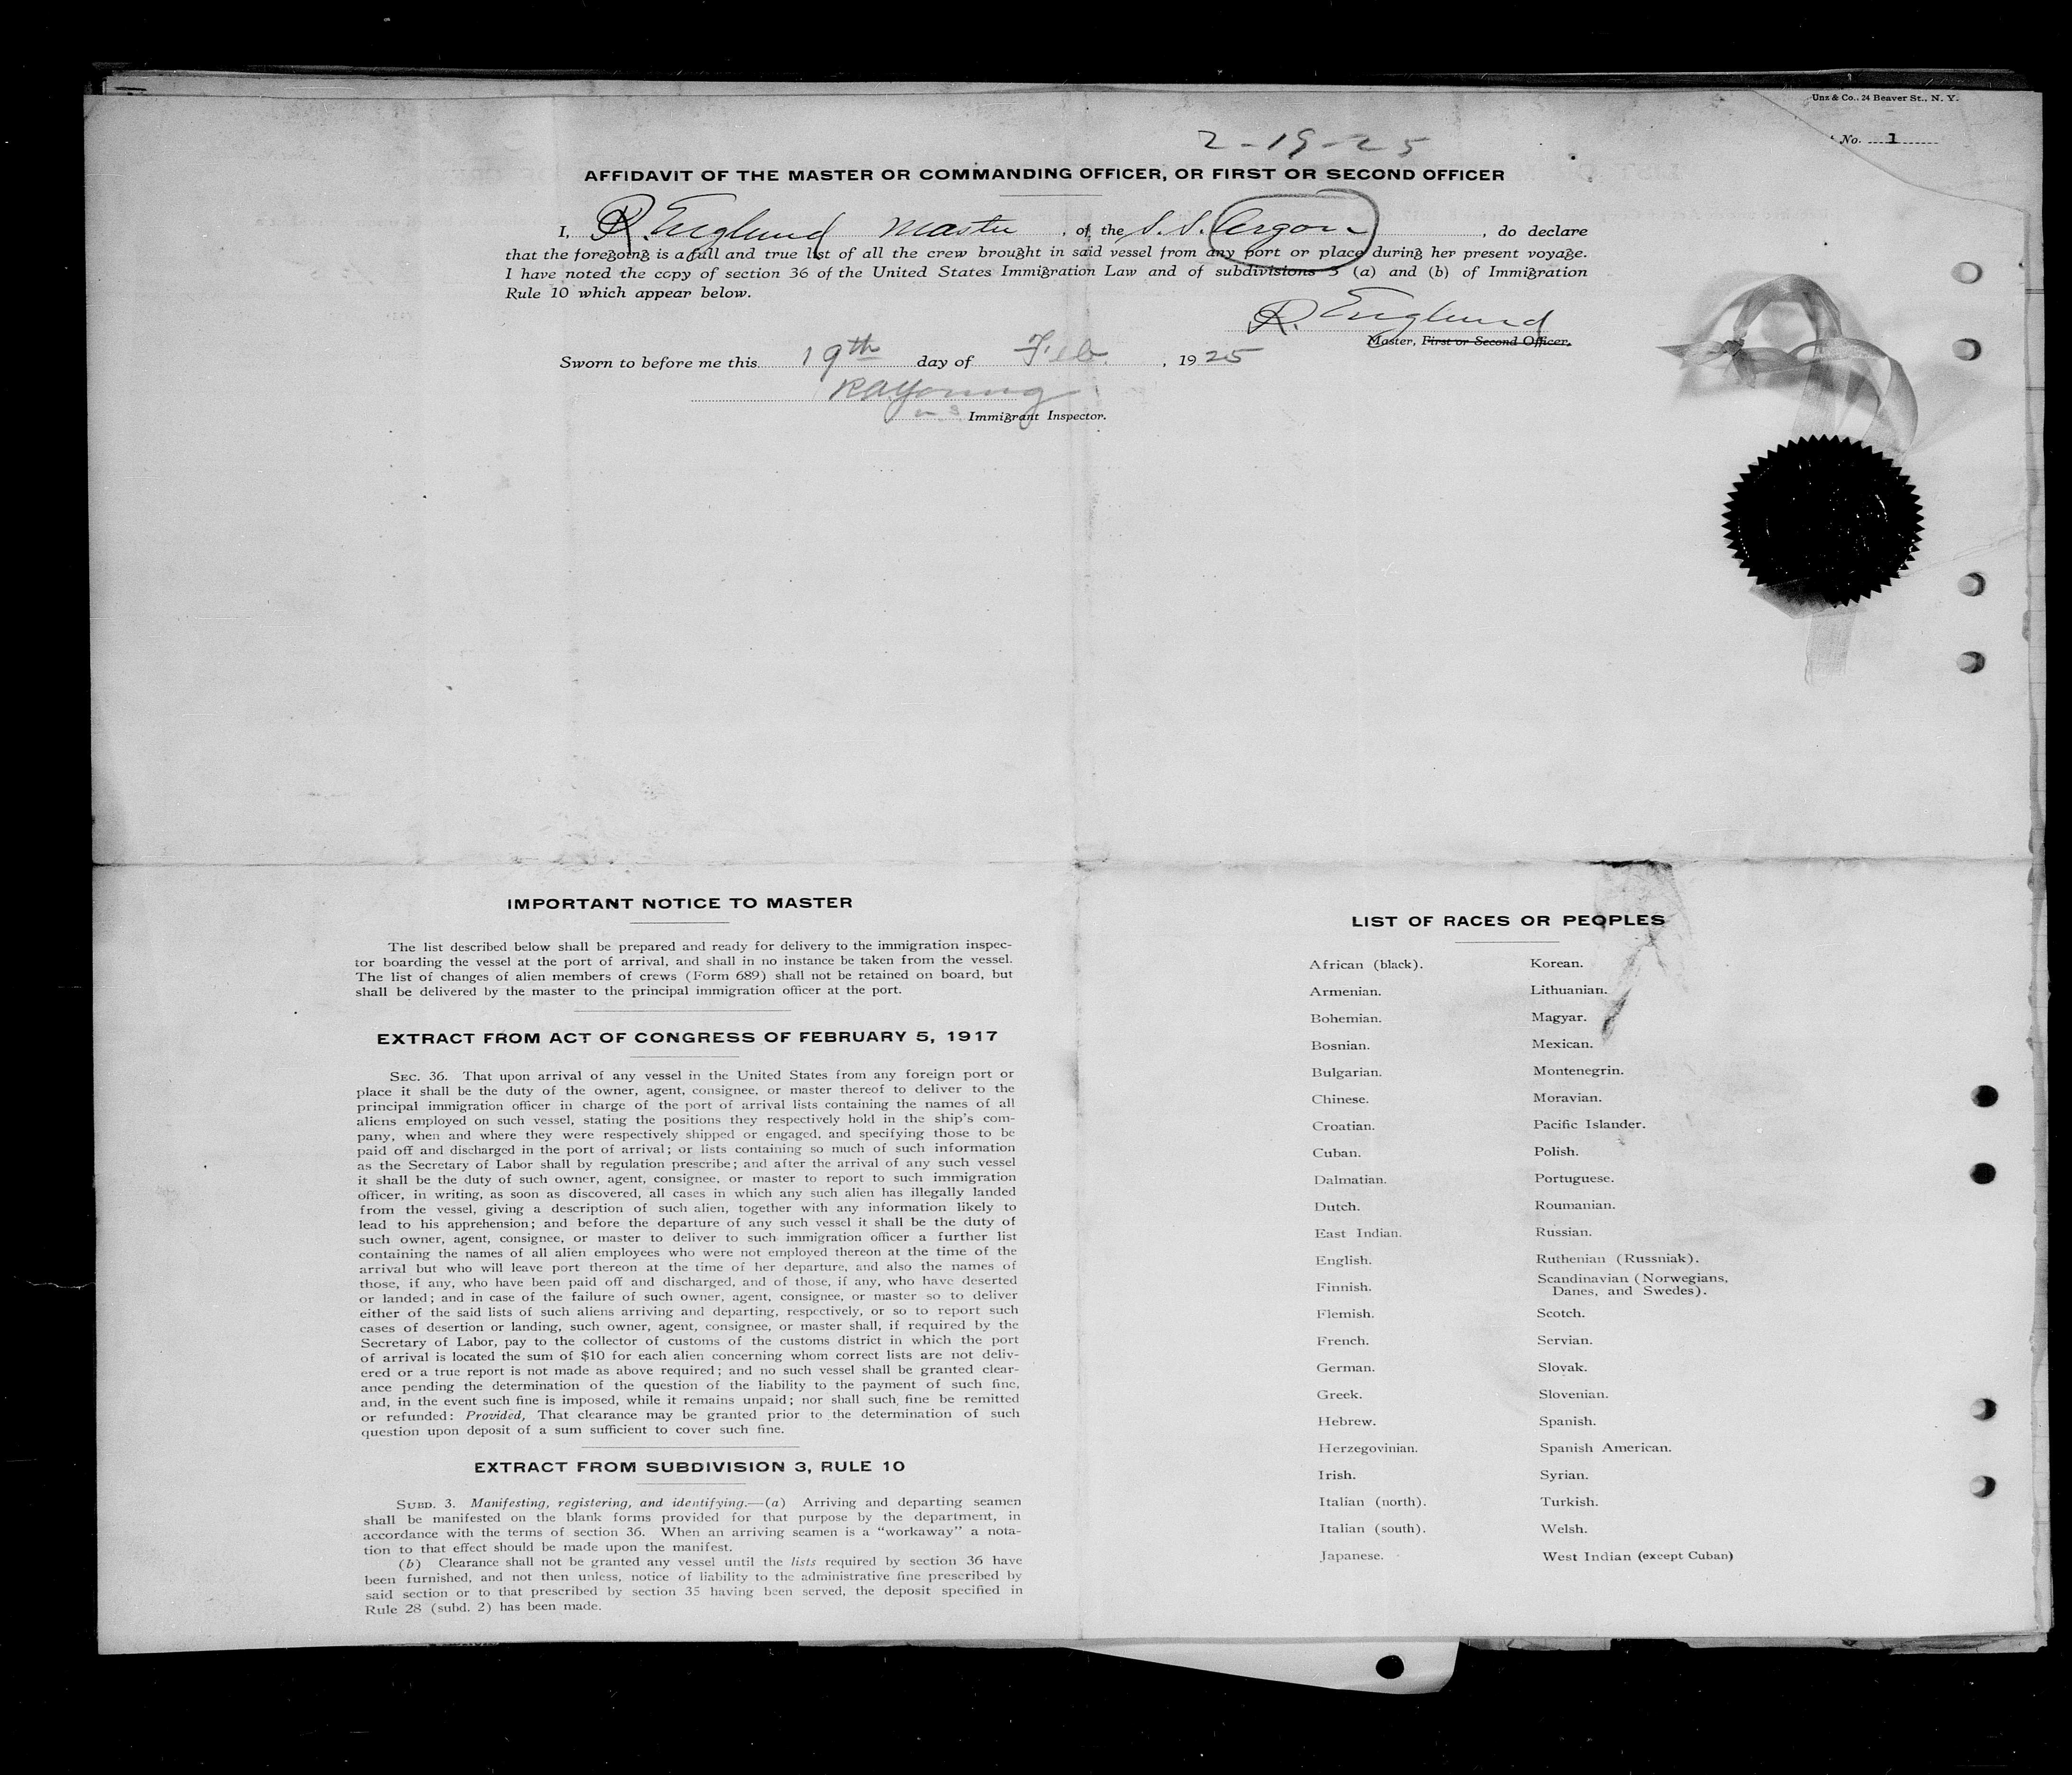 Unz & Co., 24 Beaver St., N. Y.
No. 1
2-19-25
AFFIDAVIT OF THE MASTER OR COMMANDING OFFICER, OR FIRST OR SECOND OFFICER
I, R. Englund Master, of the S.S. Argon, do declare
that the foregoing is a full and true list of all the crew brought in said vessel from any port or place during her present voyage.
I have noted the copy of section 36 of the United States Immigration Law and of subdivisions 3 (a) and (b) of Immigration
Rule 10 which appear below.
R. Englund
Master, First or Second Officer.
Sworn to before me this 19th day of Feb., 1925
RA Young
Immigrant Inspector.
IMPORTANT NOTICE TO MASTER
The list described below shall be prepared and ready for delivery to the immigration inspec-
tor boarding the vessel at the port of arrival, and shall in no instance be taken from the vessel.
The list of changes of alien members of crews (Form 689) shall not be retained on board, but
shall be delivered by the master to the principal immigration officer at the port.
EXTRACT FROM ACT OF CONGRESS OF FEBRUARY 5, 1917
SEC. 36. That upon arrival of any vessel in the United States from any foreign port or
place it shall be the duty of the owner, agent, consignee, or master thereof to deliver to the
principal immigration officer in charge of the port of arrival lists containing the names of all
aliens employed on such vessel, stating the positions they respectively hold in the ship's com-
pany, when and where they were respectively shipped or engaged, and specifying those to be
paid off and discharged in the port of arrival; or lists containing so much of such information
as the Secretary of Labor shall by regulation prescribe; and after the arrival of any such vessel
it shall be the duty of such owner, agent, consignee, or master to report to such immigration
officer, in writing, as soon as discovered, all cases in which any such alien has illegally landed
from the vessel, giving a description of such alien, together with any information likely to
lead to his apprehension; and before the departure of any such vessel it shall be the duty of
such owner, agent, consignee, or master to deliver to such immigration officer a further list
containing the names of all alien employees who were not employed thereon at the time of the
arrival but who will leave port thereon at the time of her departure, and also the names of
those, if any, who have been paid off and discharged, and of those, if any, who have deserted
or landed; and in case of the failure of such owner, agent, consignee, or master so to deliver
either of the said lists of such aliens arriving and departing, respectively, or so to report such
cases of desertion or landing, such owner, agent, consignee, or master shall, if required by the
Secretary of Labor, pay to the collector of customs of the customs district in which the port
of arrival is located the sum of $10 for each alien concerning whom correct lists are not deliv-
ered or a true report is not made as above required; and no such vessel shall be granted clear-
ance pending the determination of the question of the liability to the payment of such fine,
and, in the event such fine is imposed, while it remains unpaid; nor shall such fine be remitted
or refunded: Provided, That clearance may be granted prior to the determination of such
question upon deposit of a sum sufficient to cover such fine.
EXTRACT FROM SUBDIVISION 3, RULE 10
SUBD. 3. Manifesting, registering, and identifying.—(a) Arriving and departing seamen
shall be manifested on the blank forms provided for that purpose by the department, in
accordance with the terms of section 36. When an arriving seamen is a "workaway" a nota-
tion to that effect should be made upon the manifest.
(b) Clearance shall not be granted any vessel until the lists required by section 36 have
been furnished, and not then unless, notice of liability to the administrative fine prescribed by
said section or to that prescribed by section 35 having been served, the deposit specified in
Rule 28 (subd. 2) has been made.
LIST OF RACES OR PEOPLES
African (black).
Armenian.
Bohemian.
Bosnian.
Bulgarian.
Chinese.
Croatian.
Cuban.
Dalmatian.
Dutch.
East Indian.
English.
Finnish.
Flemish.
French.
German.
Greek.
Hebrew.
Herzegovinian.
Irish.
Italian (north).
Italian (south).
Japanese.
Korean.
Lithuanian.
Magyar.
Mexican.
Montenegrin.
Moravian.
Pacific Islander.
Polish.
Portuguese.
Roumanian.
Russian.
Ruthenian (Russniak).
Scandinavian (Norwegians,
Danes, and Swedes).
Scotch.
Servian.
Slovak.
Slovenian.
Spanish.
Spanish American.
Syrian.
Turkish.
Welsh.
West Indian (except Cuban)